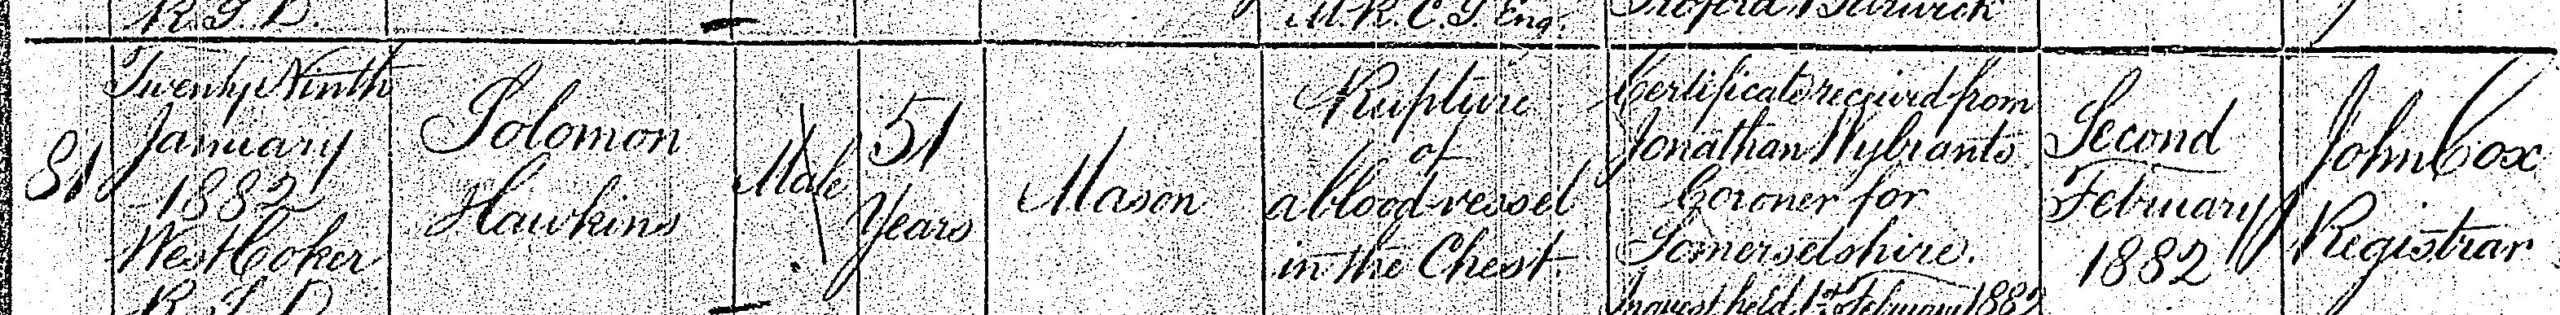 R.S.D.
M.R.C.S. Eng.
81
Twenty Ninth
January
1882
West Coker
R.S.D.
Solomon
Hawkins
Male
51
Years
Mason
Rupture
of
a blood-vessel
in the Chest.
Certificate received from
Jonathan Wybrants
Coroner for
Somersetshire.
Inquest held 1st February 1882
Second
February
1882
John Cox
Registrar